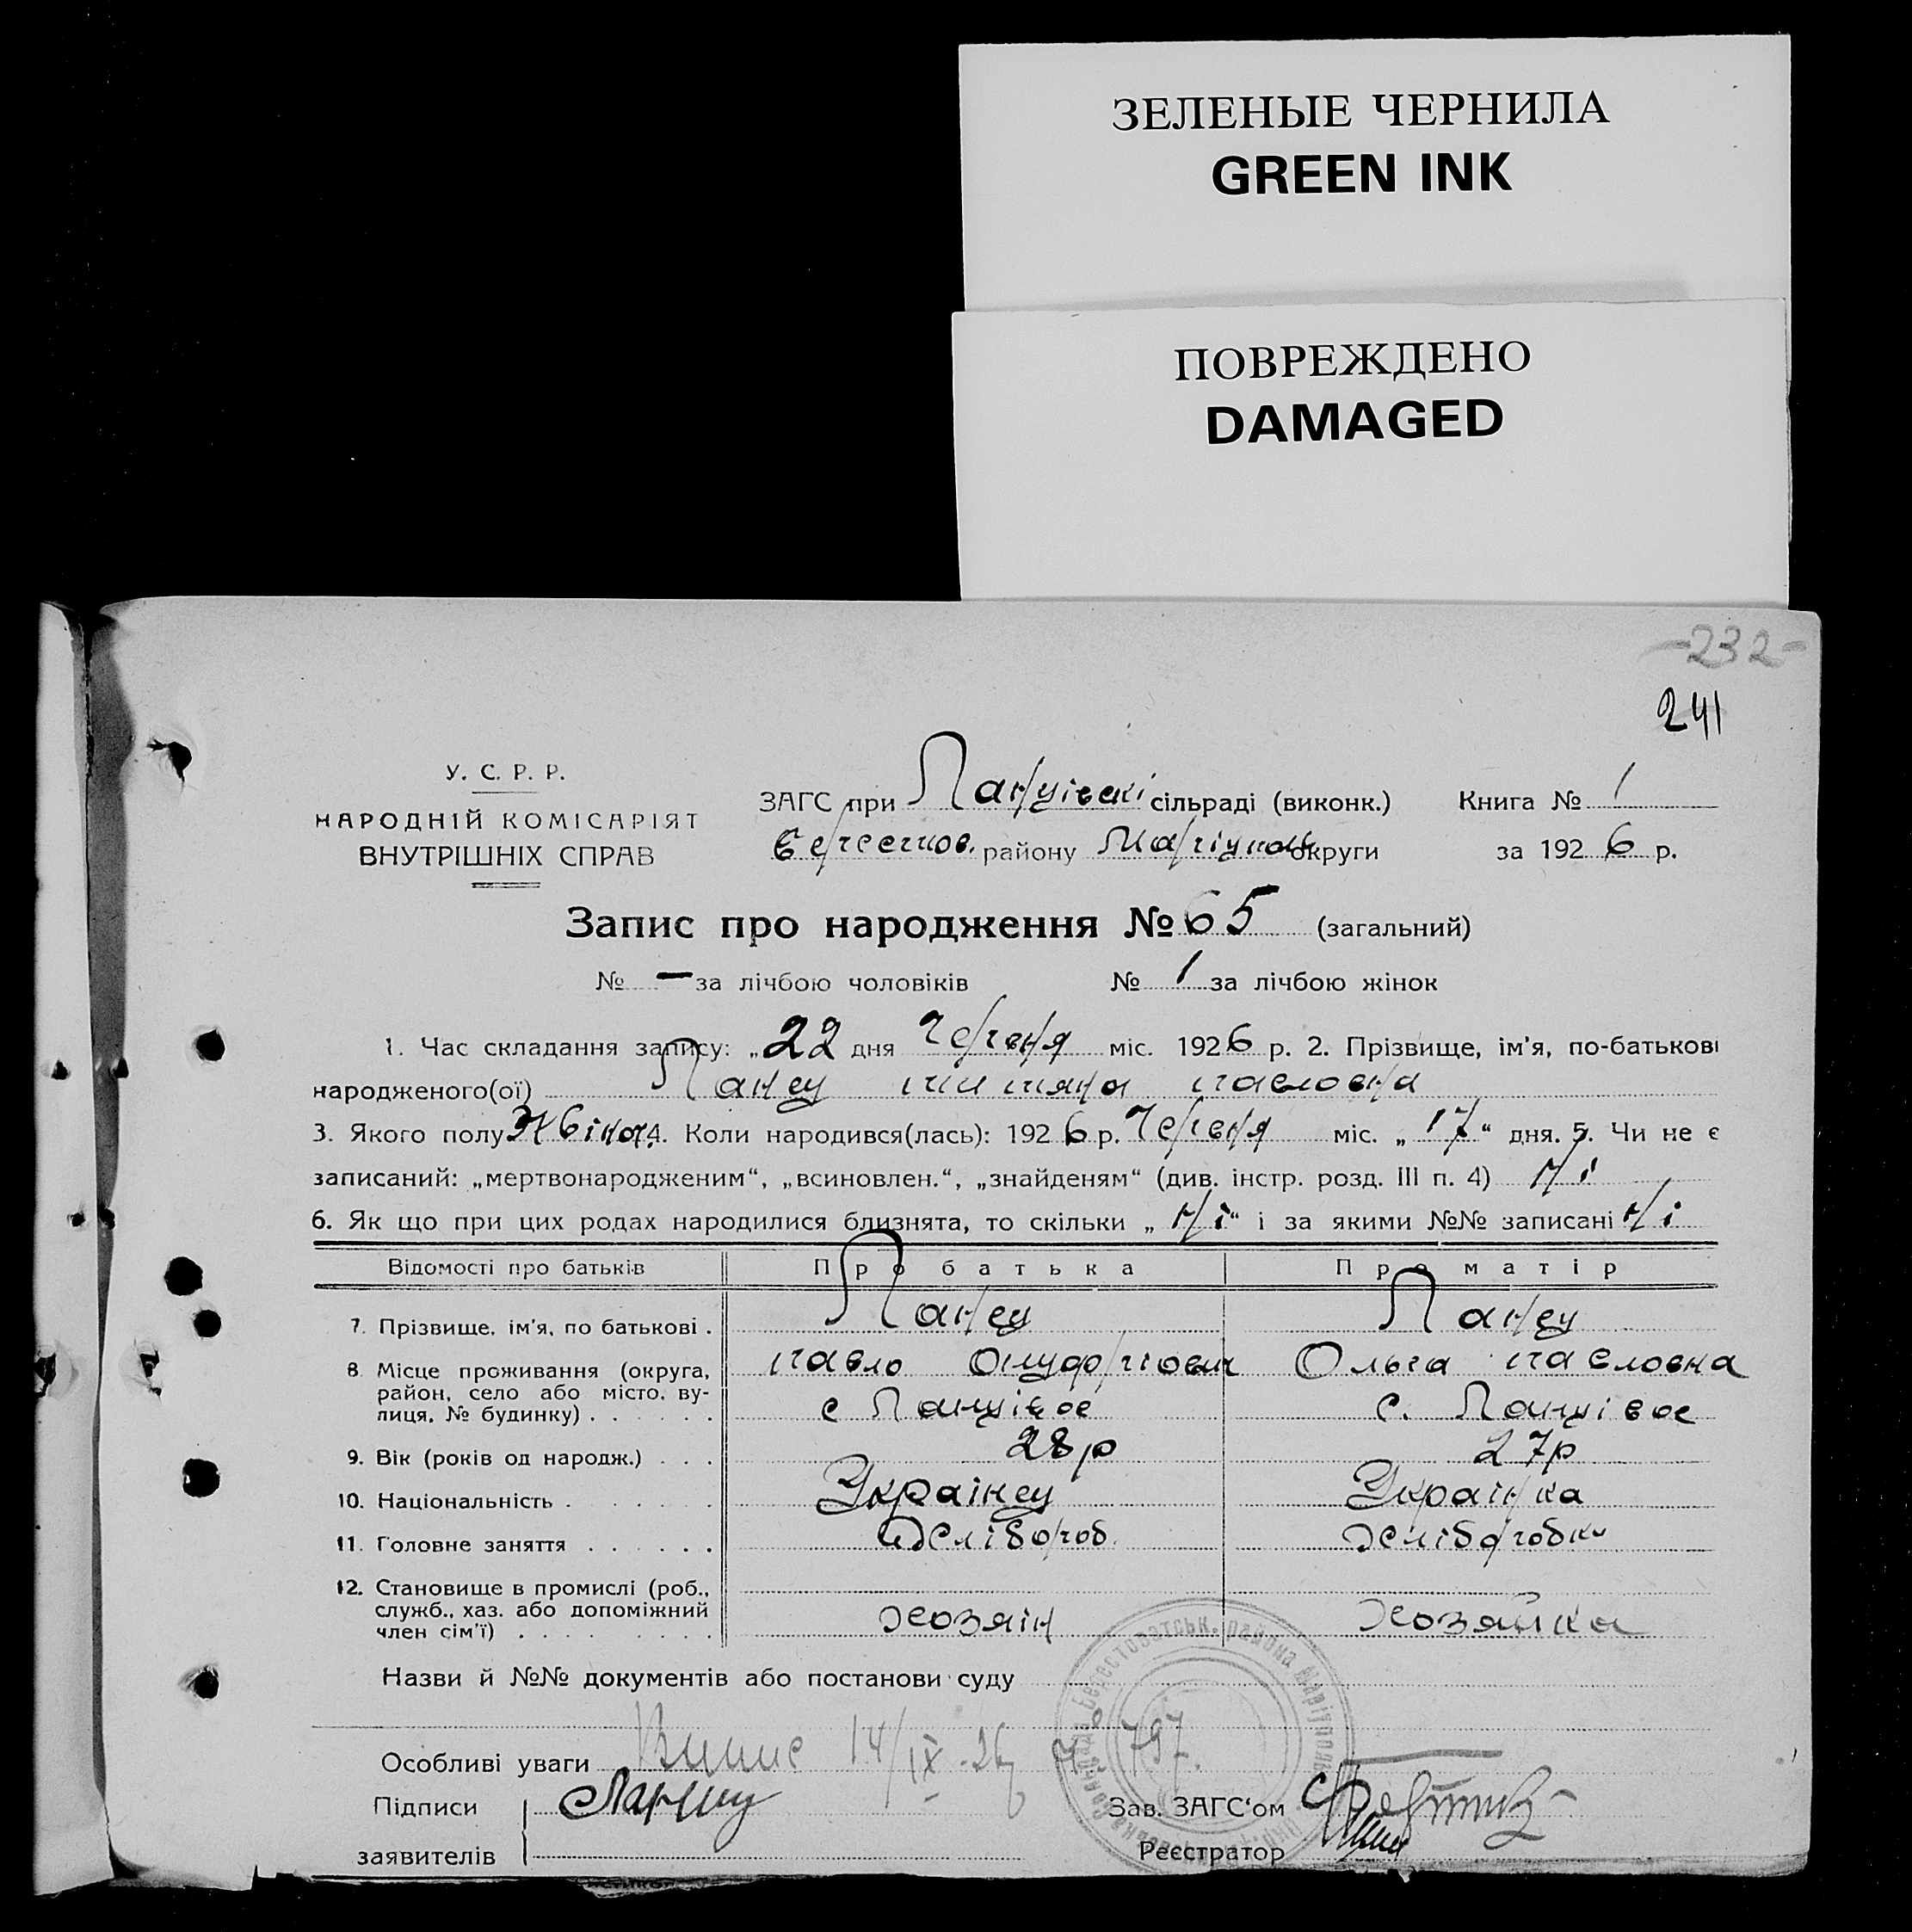 ЗЕЛЕНЫЕ ЧЕРНИЛА
GREEN INK
ПОВРЕЖДЕНО
DAMAGED
-232-
241
У. С. Р. Р.
НАРОДНІЙ КОМІСАРІЯТ
ВНУТРІШНІХ СПРАВ
ЗАГС при сільраді (виконк.) Книга № 1
району округи за 1926 р.
Запис про народження № 65 (загальний)
№ — за лічбою чоловіків № 1 за лічбою жінок
1. Час складання запису: „22 дня Червня міс. 1926 р. 2. Прізвище, ім'я, по-батькові
народженого(ої) Панец павловна
3. Якого полу 4. Коли народився(лась): 1926 р. Червня міс. „17“ дня. 5. Чи не є
записаний: „мертвонародженим“, „всиновлен.“, „знайденям“ (див. інстр. розд. III п. 4) Ні
6. Як що при цих родах народилися близнята, то скільки „Ні“ і за якими №№ записані Ні
Відомості про батьків Про батька Про матір
7. Прізвище, ім'я, по батькові . Панец Панец
павло Ольга павловна
8. Місце проживання (округа,
район, село або місто, ву-
лиця, № будинку) . . . . . . с с.
9. Вік (років од народж.) . . . 28р 27р
10. Національність . . . . . Українец Українка
11. Головне заняття . . . . . . Хлібороб. Хлібороб
12. Становище в промислі (роб.,
служб., хаз. або допоміжний
член сім'ї) . . . . . . . . Хозяін Хозяйка
Назви й №№ документів або постанови суду
Особливі уваги 14/IX-26 797.
Підписи
заявителів
Зав. ЗАГС'ом
Реєстратор
Берестоватськ. района Маріупол